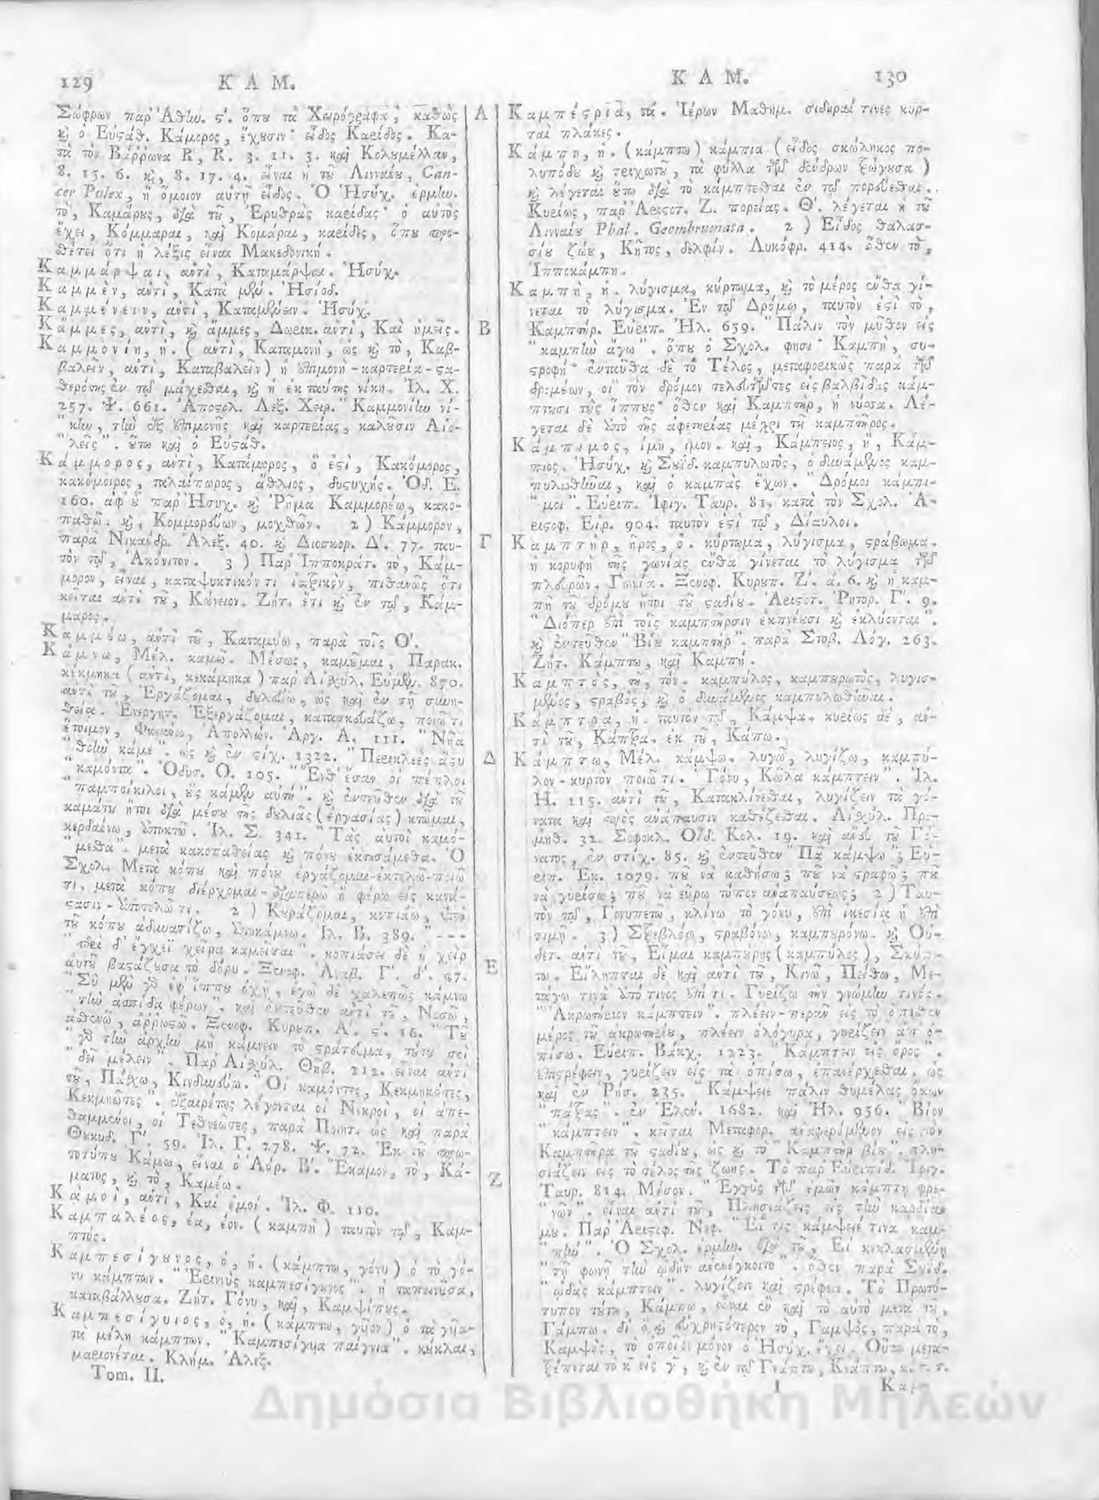 129 ΚΑΜ.
Σώφρων παρ' Ἀθήν. ς'. ὅπου τὰ Χειρόγραφα, καθὼς
καὶ ὁ Εὐστάθ. Κάμορος, ἔχουσιν· εἶδος Καρίδος. Κα-
τὰ τὸν Βάρρωνα R, R. 3. 11. 3. καὶ Κολυμέλλαν,
8. 15. 6. καὶ, 8. 17. 4. εἶναι ἡ τοῦ Λινναίου, Can-
cer Pulex, ἢ ὅμοιον αὐτῇ εἶδος. Ὁ Ἡσύχ. ἑρμην.
τὸ, Καμάρους, διὰ τοῦ, Ἐρυθρὰς καρίδας· ὁ αὐτὸς
ἔχει, Κόμμαραι, καὶ Κομάραι, καρίδες, ὅπου προς-
θέτει ὅτι ἡ λέξις εἶναι Μακεδονική.
Καμμάρψαι, αντὶ, Καταμάρψαι. Ἡσύχ.
Καμμὲν, αντὶ, Κατὰ μὲν. Ἡσίοδ.
Καμμένειν, αντὶ, Καταμένειν. Ἡσύχ.
Κάμμες, αντὶ, καὶ ἄμμες, Δωρικ. αντὶ, Καὶ ἡμεῖς.
Καμμονίη, ἡ. (αντὶ, Καταμονὴ, ὡς καὶ τὸ, Καβ-
βαλεῖν, αντὶ, Καταβαλεῖν) ἡ ἐπιμονὴ-καρτερία-στα-
θερότης ἐν τῷ μάχεσθαι, καὶ ἡ ἐκ ταύτης νίκη. Ἰλ. Χ.
257. Ψ. 661. Ἀποστολ. Λεξ. Χειρ. "Καμμονίην νί-
"κην, τὴν ἐξ ἐπιμονῆς καὶ καρτερίας, καλοῦσιν Αἰο-
"λεῖς". οὕτω καὶ ὁ Εὐστάθ.
Κάμμορος, αντὶ, Κατάμορος, ὅ ἐστὶ, Κακόμορος,
κακόμοιρος, ταλαίπωρος, ἄθλιος, δυστυχής. Ὀδ. Ε.
160. ἀφ' οὗ παρ' Ἡσύχ. καὶ Ῥῆμα Καμμορέω, κακο-
παθῶ. καὶ, Κομμορεύων, μοχθῶν. 2) Κάμμορον,
παρὰ Νικάνδρ. Ἀλεξ. 40. καὶ Διοσκορ. Δ'. 77. ταυ-
τὸν τῷ, Ἀκόνιτον. 3) Παρ' Ἱπποκράτ. τὸ, Κάμ-
μορον, εἶναι, καταψυκτικόν τι ἰατρικὸν, πιθανῶς ὅτι
κεῖται αντὶ τοῦ, Κώνειον. Ζήτ. ἔτι καὶ ἐν τῷ, Κάμ-
μαρος.
Καμμύω, αντὶ τοῦ, Καταμύω, παρὰ τοῖς Ο'.
Κάμνω, Μέλ. καμῶ. Μέσως, καμοῦμαι, Παρακ.
κέκμηκα (αντὶ, κεκάμηκα) παρ' Αἰσχύλ. Εὐμεν. 870.
αντὶ τοῦ, Ἐργάζομαι, δουλεύω, ὡς καὶ ἐν τῇ συνη-
θείᾳ. Ἐνεργητ. Ἐξεργάζομαι, κατασκευάζω, ποιῶ τι
ἕτοιμον, Φκιάνω, Ἀπολλων. Ἀργ. Α. 111. "Νῆα
"θοὴν κάμε". ὡς καὶ ἐν στίχ. 1322. "Περικλεὲς ἄστυ
"καμόντα". Ὀδυσ. Ο. 105. "Ἔνθ' ἔσαν οἱ πέπλοι
"παμποίκιλοι, οὓς κάμεν αὐτή". καὶ ἐντεῦθεν διὰ τοῦ
καμάτου ἤτοι διὰ μέσου τῆς δουλιᾶς (ἐργασίας) κτῶμαι,
κερδαίνω, ἀποκτῶ. Ἰλ. Σ. 341. "Τὰς αὐτοὶ καμό-
"μεθα". μετὰ κακοπαθείας καὶ πόνου ἐκτησάμεθα. Ὁ
Σχολ. Μετὰ κόπου καὶ πόνου ἐργάζομαι-ἐκτελῶ-ποιῶ
τι, μετὰ κόπου διέρχομαι-διαπερῶ ἢ φέρω εἰς κατά-
στασιν-ἀποτελῶ τι. 2) Κουράζομαι, κοπιάω, ἀπὸ
τοῦ κόπου ἀδυνατίζω, ἀποκάμνω. Ἰλ. Β. 389. "---
"περὶ δ' ἔγχεϊ χεῖρα καμεῖται". κοπιάσει δὲ ἡ χεὶρ
αὐτοῦ βαστάζουσα τὸ δόρυ. Ξενοφ. Ἀναβ. Γ'. δ'. 47.
"Σὺ μὲν γὰρ ἐφ' ἵππου ὀχῇ, ἐγὼ δὲ χαλεπῶς κάμνω
"τὴν ἀσπίδα φέρων". καὶ ἐντεῦθεν αντὶ τοῦ, Νοσῶ,
ἀσθενῶ, ἀρρωστῶ. Ξενοφ. Κυροπ. Α'. ς'. 16. "Τοῦ
"γὰρ τὴν ἀρχὴν μὴ κάμνειν τὸ στράτευμα, τούτου σοι
"δεῖ μέλειν". Παρ' Αἰσχύλ. Θηβ. 212. εἶναι αντὶ
τοῦ, Πάσχω, Κινδυνεύω. "Οἱ καμόντες, Κεκμηκότες,
Κεκμηῶτες". ἐξαιρέτως λέγονται οἱ Νεκροὶ, οἱ ἀπε-
θαμμένοι, οἱ Τεθνεῶτες, παρὰ Ποιητ. ὡς καὶ παρὰ
Θουκυδ. Γ'. 59. Ἰλ. Γ. 278. Ψ. 72. Ἐκ τοῦ πρω-
τοτύπου Κάμω, εἶναι ὁ Ἀόρ. Β'. Ἔκαμον, τὸ, Κά-
ματος, καὶ τὸ, Καμέω.
Κἀμοὶ, αντὶ, Καὶ ἐμοί. Ἰλ. Φ. 110.
Καμπαλέος, έα, έον. (καμπὴ) ταυτὸν τῷ, Καμ-
πτός.
Καμπεσίγουνος, ὁ, ἡ. (κάμπτω, γόνυ) ὁ τὸ γό-
νυ κάμπτων. "Ἐρινὺς καμπεσίγουνος". ἡ ταπεινοῦσα,
καταβάλλουσα. Ζήτ. Γόνυ, καὶ, Καμψίπους.
Καμπεσίγυιος, ὁ, ἡ. (κάμπτω, γυῖον) ὁ τὰ γυῖα-
τὰ μέλη κάμπτων. "Καμπεσίγυια παίγνια". κοῦκλαι,
μαριονέται. Κλήμ. Ἀλεξ.
Tom. II.
Α
Β
Γ
Δ
Ε
Ζ
ΚΑΜ. 130
Καμπέστρια, τά. Ἱέρων Μαθημ. σιδηραῖ τινες κυρ-
ταὶ πλάκες.
Κάμπη, ἡ. (κάμπτω) κάμπια (εἶδος σκώληκος πο-
λυπόδου καὶ τριχωτοῦ, τὰ φύλλα τῶν δένδρων τρώγουσα)
καὶ λέγεται οὕτω διὰ τὸ κάμπτεσθαι ἐν τῷ πορεύεσθαι.
Κυρίως, παρ' Ἀριστοτ. Ζ. πορείας. Θ'. λέγεται ἡ τοῦ
Λινναίου Phal. Geombruonata. 2) Εἶδος θαλασ-
σίου ζώου, Κῆτος, δελφίν. Λυκόφρ. 414. ὅθεν τὸ,
Ἱπποκάμπη.
Καμπὴ, ἡ. λύγισμα, κύρτωμα, καὶ τὸ μέρος ἔνθα γί-
νεται τὸ λύγισμα. Ἐν τῷ Δρόμῳ, ταυτὸν ἐστὶ τὸ,
Καμπτήρ. Εὐριπ. Ἠλ. 659. "Πάλιν τὸν μῦθον εἰς
"καμπὴν ἄγω". ὅπου ὁ Σχολ. φησί· Καμπὴ, συ-
στροφή· ἐνταῦθα δὲ τὸ Τέλος, μεταφορικῶς παρὰ τῶν
δρομέων, οἳ τὸν δρόμον τελοῦντες εἰς βαλβῖδας κάμ-
πτουσι τοὺς ἵππους· ὅθεν καὶ Καμπτὴρ, ἡ νύσσα. Λέ-
γεται δὲ ἀπὸ τῆς ἀφετηρίας μέχρι τοῦ καμπτῆρος.
Κάμπιμος, ίμη, ιμον. καὶ, Κάμπειος, ἢ, Κάμ-
πιος. Ἡσύχ. καὶ Σουΐδ. καμπυλωτὸς, ὁ δυνάμενος καμ-
πυλωθῆναι, καὶ ὁ καμπὰς ἔχων. "Δρόμοι καμπι-
"μοι". Εὐριπ. Ἰφιγ. Ταυρ. 81, κατὰ τὸν Σχολ. Ἀ-
ριστοφ. Εἰρ. 904. ταυτὸν ἐστὶ τῷ, Δίαυλοι.
Καμπτὴρ, ῆρος, ὁ. κύρτωμα, λύγισμα, στράβωμα.
ἡ κορυφὴ τῆς γωνίας ἔνθα γίνεται τὸ λύγισμα τῶν
πλευρῶν. Γωνία. Ξενοφ. Κυροπ. Ζ'. α. 6. καὶ ἡ καμ-
πὴ τοῦ δρόμου ἤτοι τοῦ σταδίου. Ἀριστοτ. Ῥητορ. Γ'. 9.
"Διόπερ ἐπὶ τοῖς καμπτῆρσιν ἐκπνέουσι καὶ ἐκλύονται".
καὶ ἐντεῦθεν "Βίου καμπτὴρ" παρὰ Στοβ. Λόγ. 263.
Ζήτ. Κάμπτω, καὶ Καμπή.
Καμπτὸς, τὴ, τὸν. καμπύλος, καμπυρωτὸς, λυγισ-
μένος, στραβὸς, καὶ ὁ δυνάμενος καμπυλωθῆναι.
Κάμπτρα, ἡ. ταυτὸν τῷ, Κάμψα. κυρίως δὲ, αν-
τὶ τοῦ, Κάπτρα. ἐκ τοῦ, Κάπω.
Κάμπτω, Μέλ. κάμψω. λυγῶ, λυγίζω, καμπύ-
λον-κυρτὸν ποιῶ τι. "Γόνυ, Κῶλα κάμπτειν". Ἰλ.
Η. 115. αντὶ τοῦ, Κατακλίνεσθαι, λυγίζειν τὰ γό-
νατα καὶ πρὸς ἀνάπαυσιν καθέζεσθαι. Αἰσχύλ. Προ-
μηθ. 32. Σοφοκλ. Οἰδ. Κολ. 19. καὶ ἄνευ τοῦ Γό-
νατος, ἐν στίχ. 85. καὶ ἐντεῦθεν "Πᾶ κάμψω"; Εὐ-
ριπ. Ἑκ. 1079. ποῦ νὰ καθήσω; ποῦ νὰ στραφῶ; ποῦ
νὰ γυρίσω; ποῦ νὰ εὕρω τόπον ἀναπαύσεως; 2) Ταυ-
τὸν τῷ, Γονυπετῶ, κλίνω τὸ γόνυ, ἐπὶ ἱκεσίᾳ ἢ ἐπὶ
τιμῇ. 3) Στρεβλόω, στραβόνω, καμπυρόνω. καὶ Οὐ-
δετ. αντὶ τοῦ, Εἶμαι καμπύρης (καμπύλος), Σκύπ-
τω. Εἴληπται δὲ καὶ αντὶ τοῦ, Κινῶ, Πείθω, Με-
τάγω τινὰ ἀπό τινος ἐπί τι. Γυρίζω τὴν γνώμην τινός.
"Ἀκρωτήριον κάμπτειν". πλέειν-περᾶν εἰς τὸ ὄπισθεν
μέρος τοῦ ἀκρωτηρίου, πλέειν ὁλόγυρα, γυρίζειν ἀπ' ὀ-
πίσω. Εὐριπ. Βάκχ. 1223. "Κάμπτειν εἰς ὄρος".
ἐπιστρέφειν, γυρίζειν εἰς τὰ ὀπίσω, ἐπανέρχεσθαι. ὡς
καὶ ἐν Ῥήσ. 235. "Κάμψειε πάλιν θυμέλας οἴκων
"πάτρας". ἐν Ἑλεν. 1682. καὶ Ἠλ. 956. "Βίον
"κάμπτειν". κεῖται Μεταφορ. ἀναφερόμενον εἰς τὸν
Καμπτῆρα τοῦ σταδίου, ὡς καὶ τὸ "Καμπτὴρ βίου". πλη-
σιάζειν εἰς τὸ τέλος τῆς ζωῆς. Τὸ παρ' Εὐριπίδ. Ἰφιγ.
Ταυρ. 814. Μέσον. "Ἐγγὺς τῶν ἐμῶν κάμπτῃ φρε-
"νῶν". εἶναι αντὶ τοῦ, Πλησιάζεις εἰς τὴν καρδίαν
μου. Παρ' Ἀριστοφ. Νεφ. "Εἴ τις κάμψειέ τινα καμ-
"πὴν". Ὁ Σχολ. ἑρμην. διὰ τοῦ, Εἰ κεκλασμένῃ
"τῇ φωνῇ τὴν ᾠδὴν ἀνεκέγκοιτο". ὅθεν παρὰ Σουΐδ.
"ᾠδὰς κάμπτειν". λυγίζειν καὶ στρέφειν. Τὸ Πρωτό-
τυπον τούτου, Κάμπω, εἶναι ἓν καὶ τὸ αὐτὸ μετὰ τοῦ,
Γάμπω. δι' ὃ καὶ εὐχρηστότερον τὸ, Γαμψὸς, παρὰ τὸ,
Καμψὸς, τὸ ὁποῖον μόνον ὁ Ἡσύχ. ἔχει. Οὕτω μετα-
τρέπεται τὸ κ' εἰς γ', καὶ ἐν τῷ Γνάπτω, Κνάπτω, κ. τ. τ.
I Καμ-
Δημόσια Βιβλιοθήκη Μηλεών